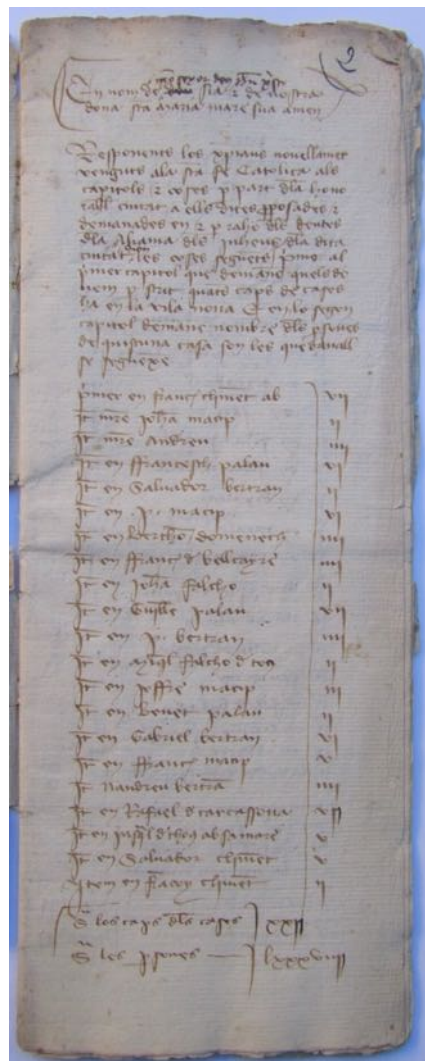 2
En nom de nostre senyor deu Jhu xst sia & de nostra
dona sta maria mare sua amen
Responents los xptians novellamet
venguts a la sta fe Catolica als
capitols & coses p part dla hono
rabl ciutat a ells dites pposades &
demanades en & p raho dls deutes
dla Aljama dls juheus dla dita
ciutat les coses seguets pimo al
pimer capitol que demane quels de
nem p scrit quats caps de cases
ha en la vila nova E en lo segon
capitol demane nombre dls psones
de quiscuna casa son les que davall
se seguexe
pimer en franc climet ab vij
It mre Joha macip ij
It mre Andreu iiij
It en ffrancesch palau vj
It en Salvador bertran ij
It en P. macip vj
It en Bertho domenech iiij
It en ffranc d bellcayre iiij
It en Joha falcho ij
It en Guille palau vij
It en P. bertran iiij
It en falcho d ij
It en Joffre macip iij
It en Benet palau ij
It en Gabriel bertran vj
It en ffranc macip v
It nandreu bertra iiij
It en Rafael d carcassona vij
It en ab sa mare v
It en Salvador climet v
Item en climet ij
Sa los caps dls cases xxj
Sa les psones lxxxviiij